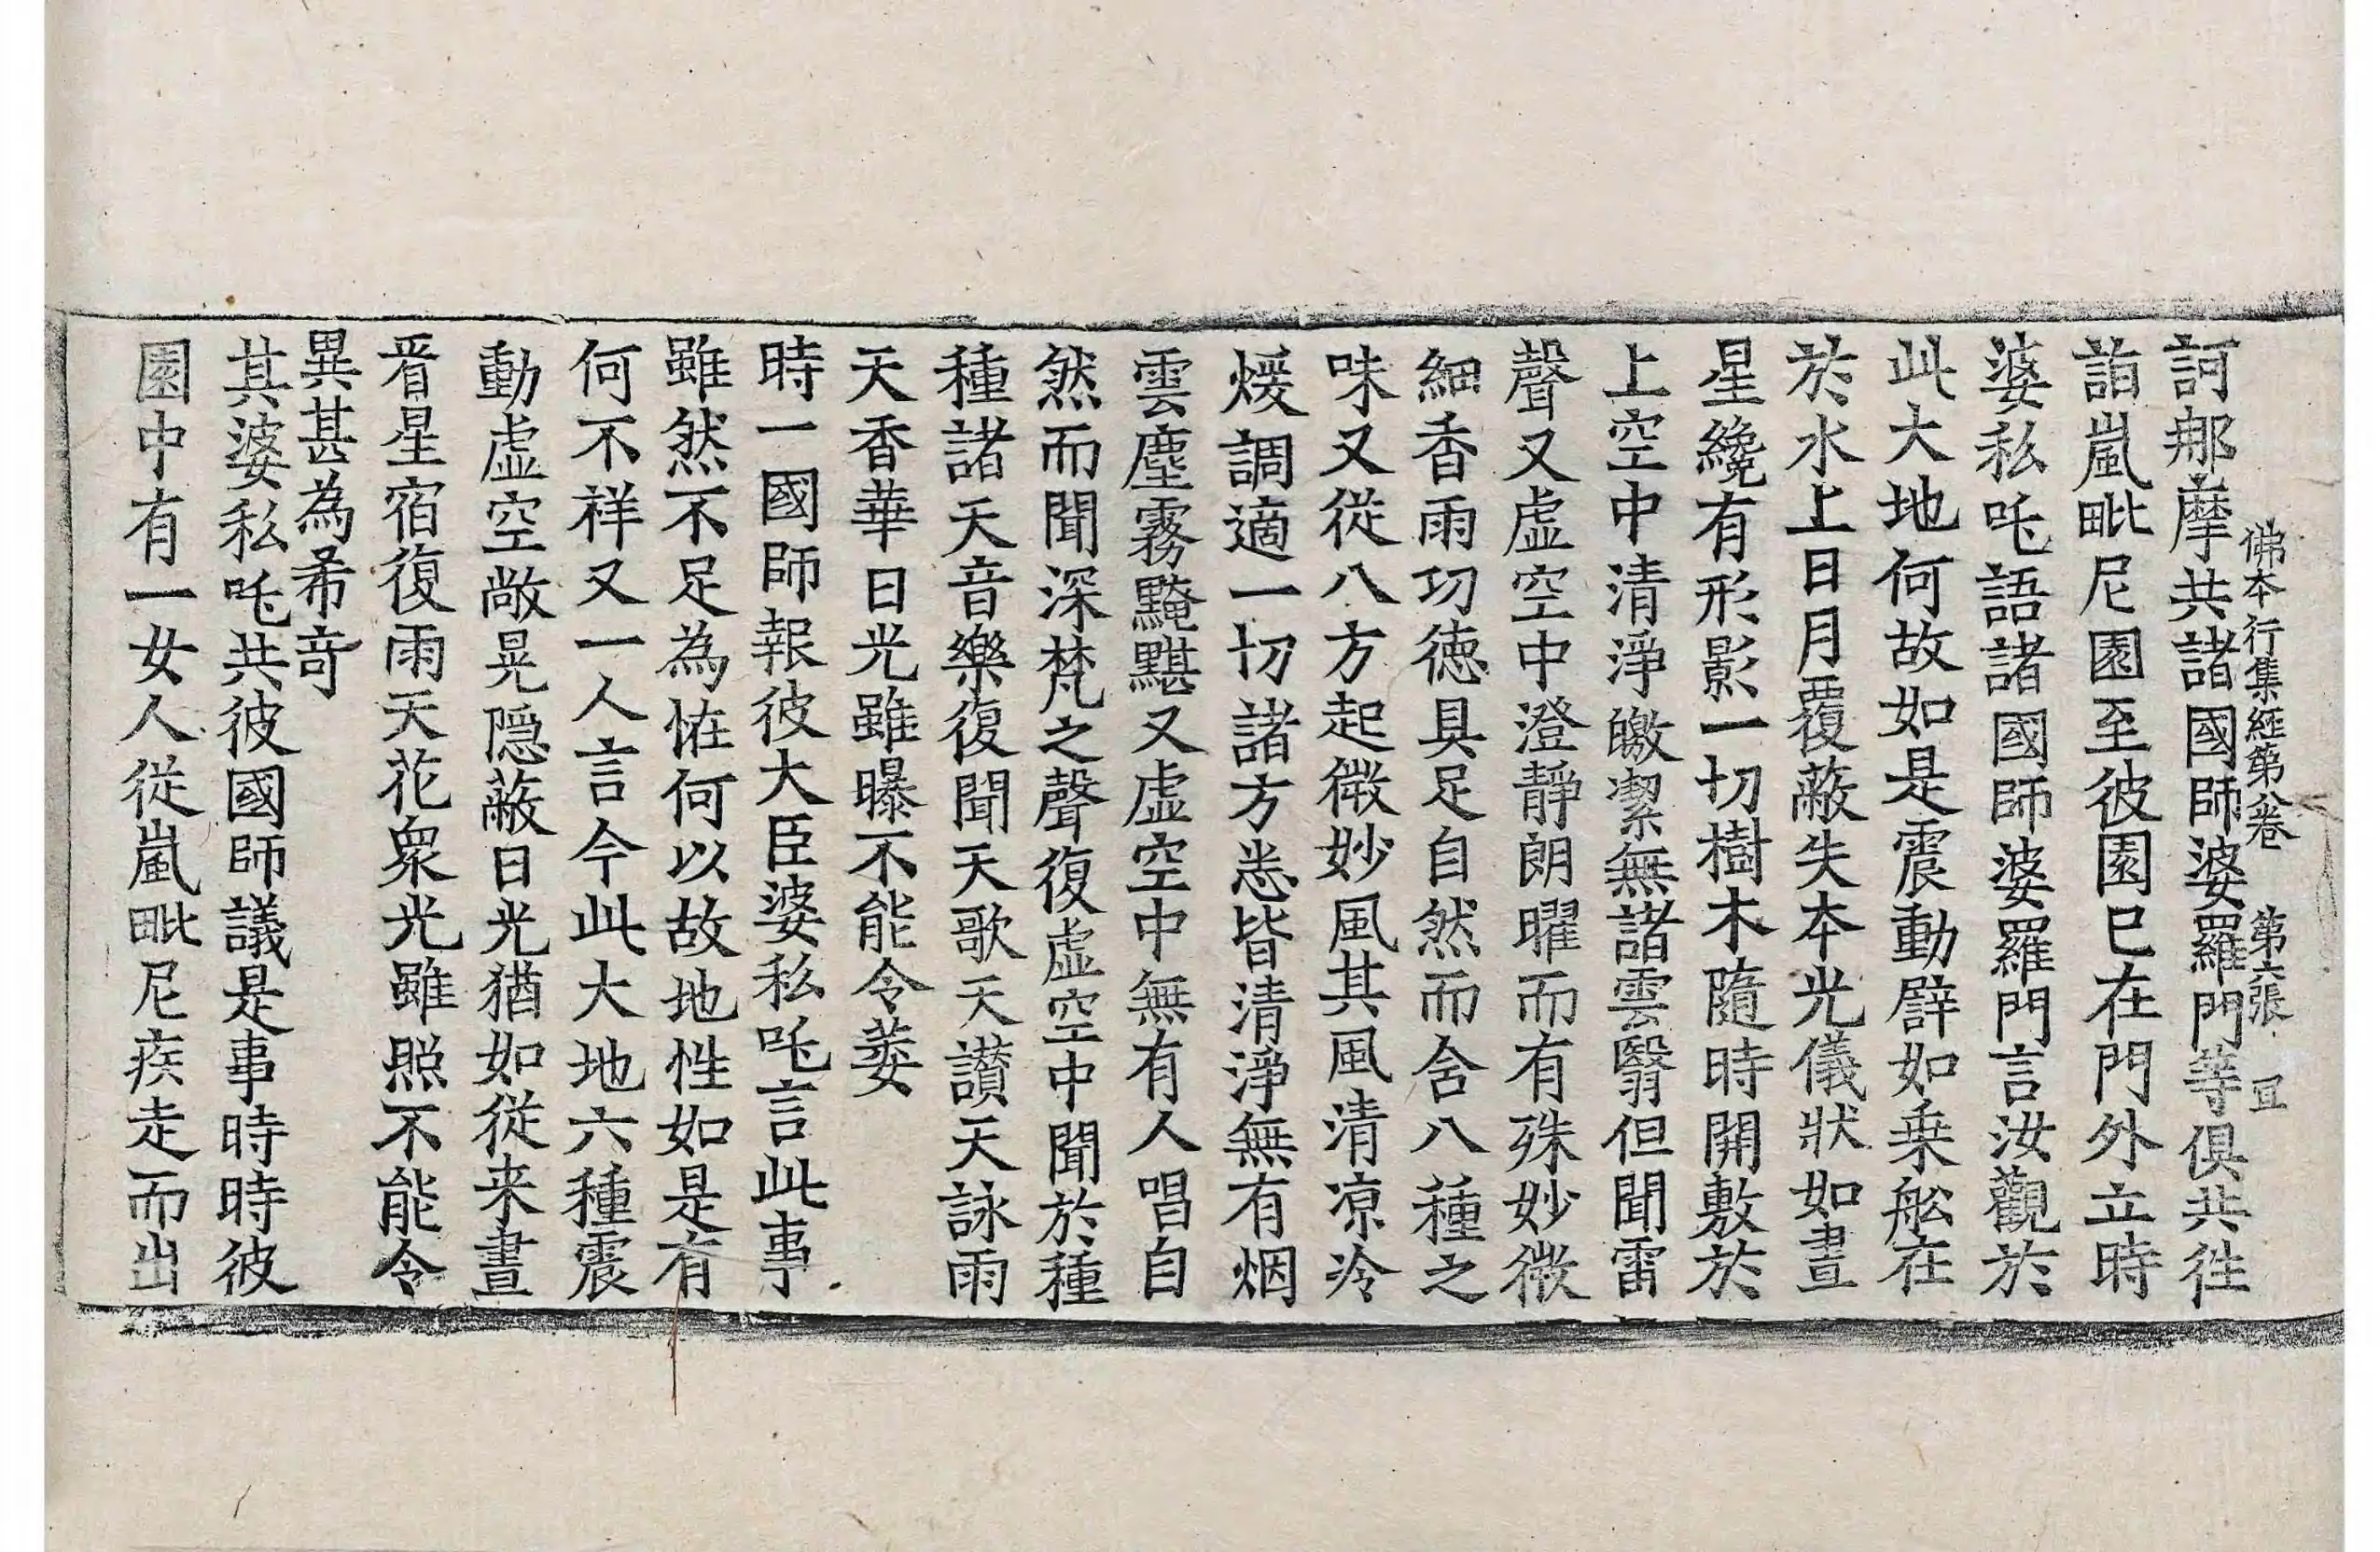 佛本行集經第八卷 第六張 宜
訶那摩共諸國師婆羅門等俱共往
詣嵐毗尼園至彼園已在門外立時
婆私吒語諸國師婆羅門言汝觀於
此大地何故如是震動辟如乗舩在
於水上日月覆蔽失本光儀狀如晝
星纔有形影一切樹木隨時開敷於
上空中清淨皦潔無諸雲翳但聞雷
聲又虛空中澄靜朗曜而有殊妙微
細香雨㓛德具足自然而含八種之
味又從八方起微妙風其風清凉冷
煖調適一切諸方悉皆清淨無有烟
雲塵霧黤黮又虛空中無有人唱自
然而聞深梵之聲復虛空中聞於種
種諸天音樂復聞天歌天讃天詠雨
天香華日光雖曝不能令萎
時一國師報彼大臣婆私吒言此事
雖然不足為恠何以故地性如是有
何不祥又一人言今此大地六種震
動虛空敞晃隠蔽日光猶如從来晝
㫺星宿復雨天花衆光雖照不能令
異甚為希奇
其婆私吒共彼國師議是事時時彼
園中有一女人從嵐毗尼疾走而出